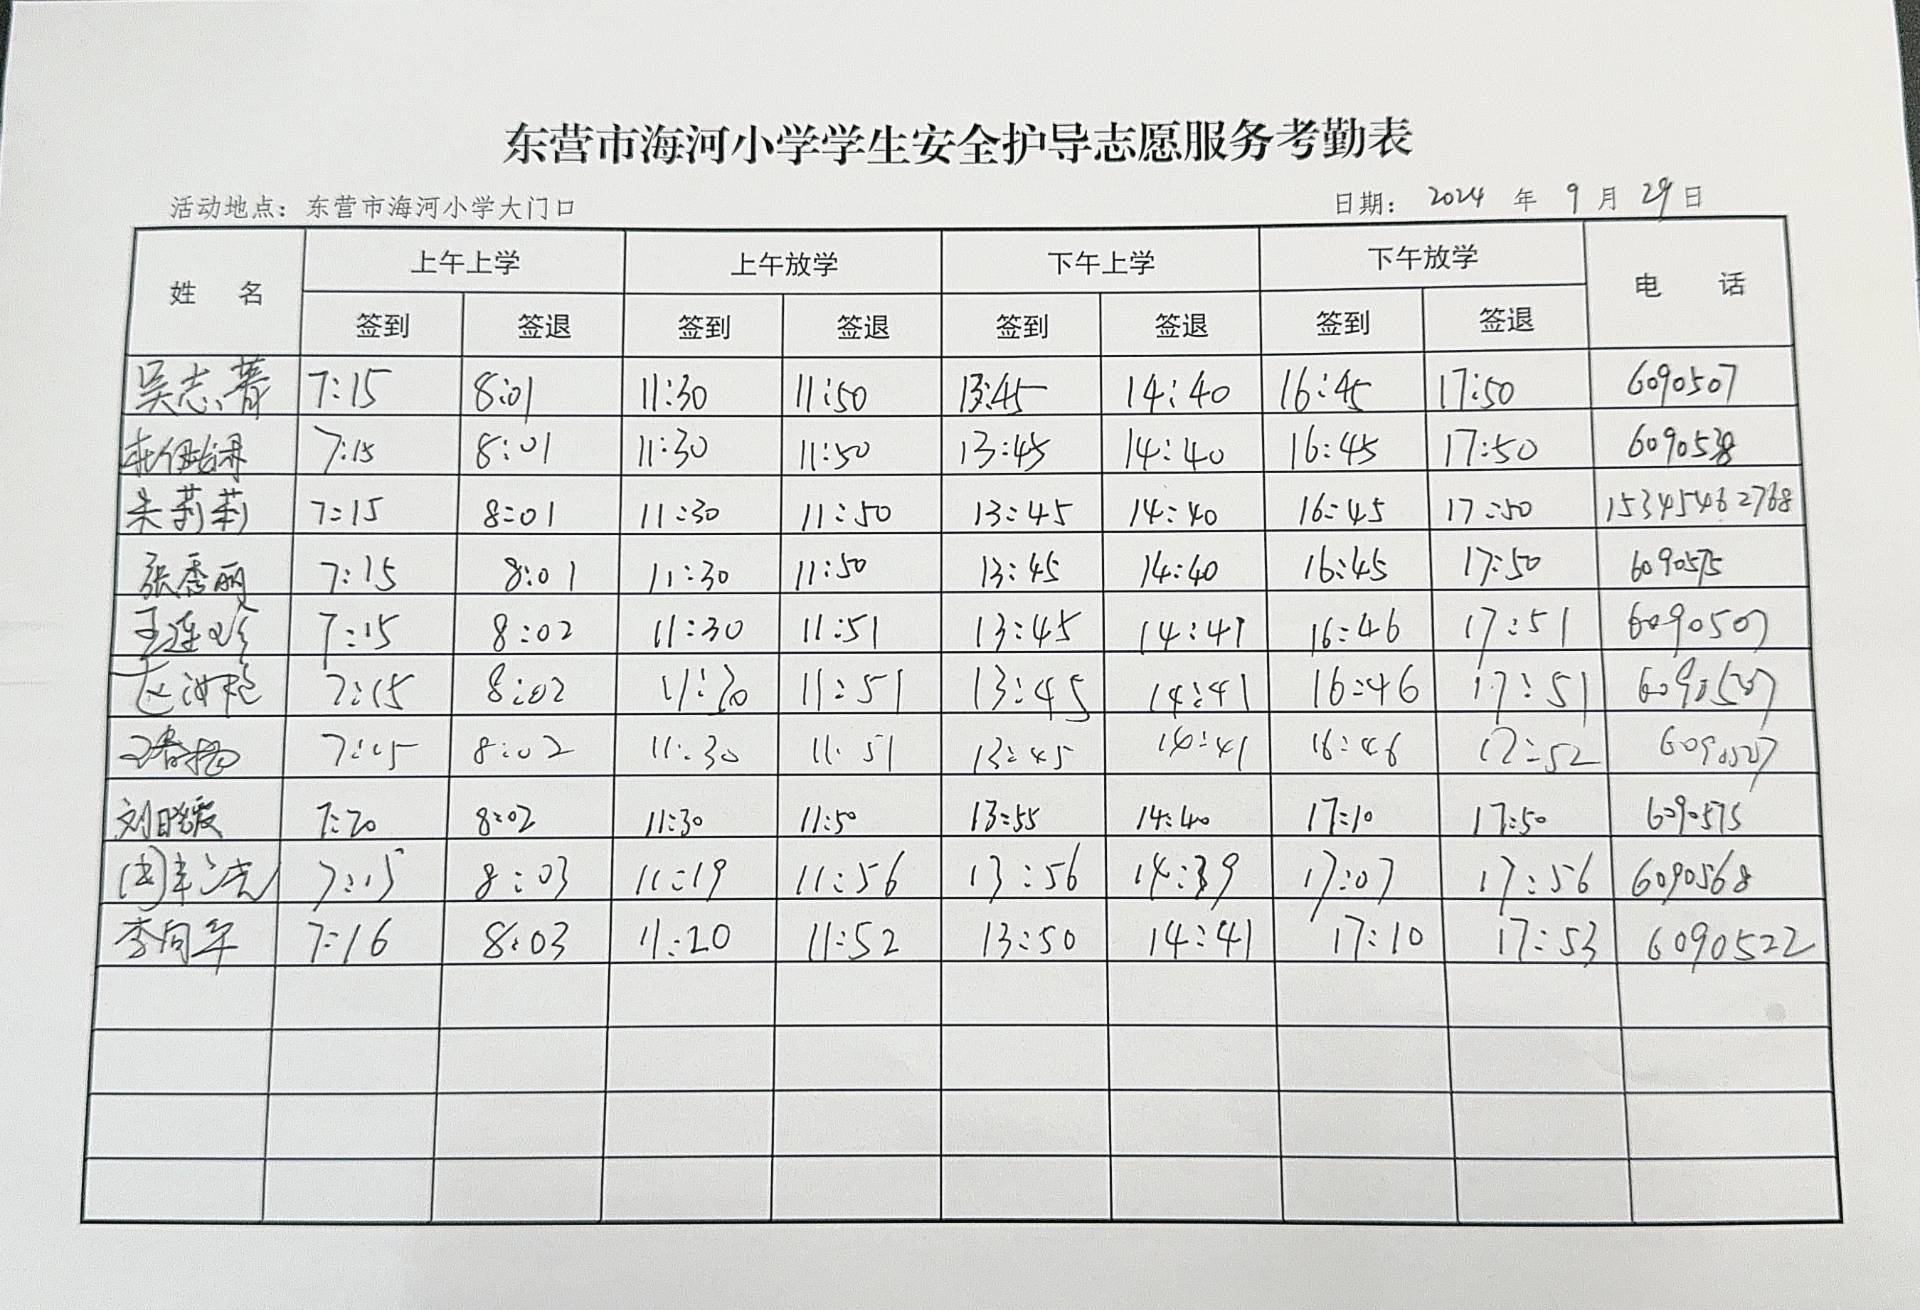 东营市海河小学学生安全护导志愿服务考勤表
活动地点：东营市海河小学大门口 日期： 2024 年 9 月 29 日
姓 名 上午上学 上午放学 下午上学 下午放学 电 话
签到 签退 签到 签退 签到 签退 签到 签退
吴志菁 7:15 8:01 11:30 11:50 13:45 14:40 16:45 17:50 6090507
7:15 8:01 11:30 11:50 13:45 14:40 16:45 17:50 6090538
朱莉莉 7:15 8:01 11:30 11:50 13:45 14:40 16:45 17:50 15345462768
张秀丽 7:15 8:01 11:30 11:50 13:45 14:40 16:45 17:50 6090575
王连珍 7:15 8:02 11:30 11:51 13:45 14:41 16:46 17:51 6090507
7:15 8:02 11:30 11:51 13:45 14:41 16:46 17:51 6090507
7:15 8:02 11:30 11:51 13:45 14:41 16:46 17:52 6090527
刘晓霞 7:20 8:02 11:30 11:50 13:55 14:40 17:10 17:50 6090575
7:15 8:03 11:19 11:56 13:56 14:39 17:07 17:56 6090568
李向军 7:16 8:03 11:20 11:52 13:50 14:41 17:10 17:53 6090522